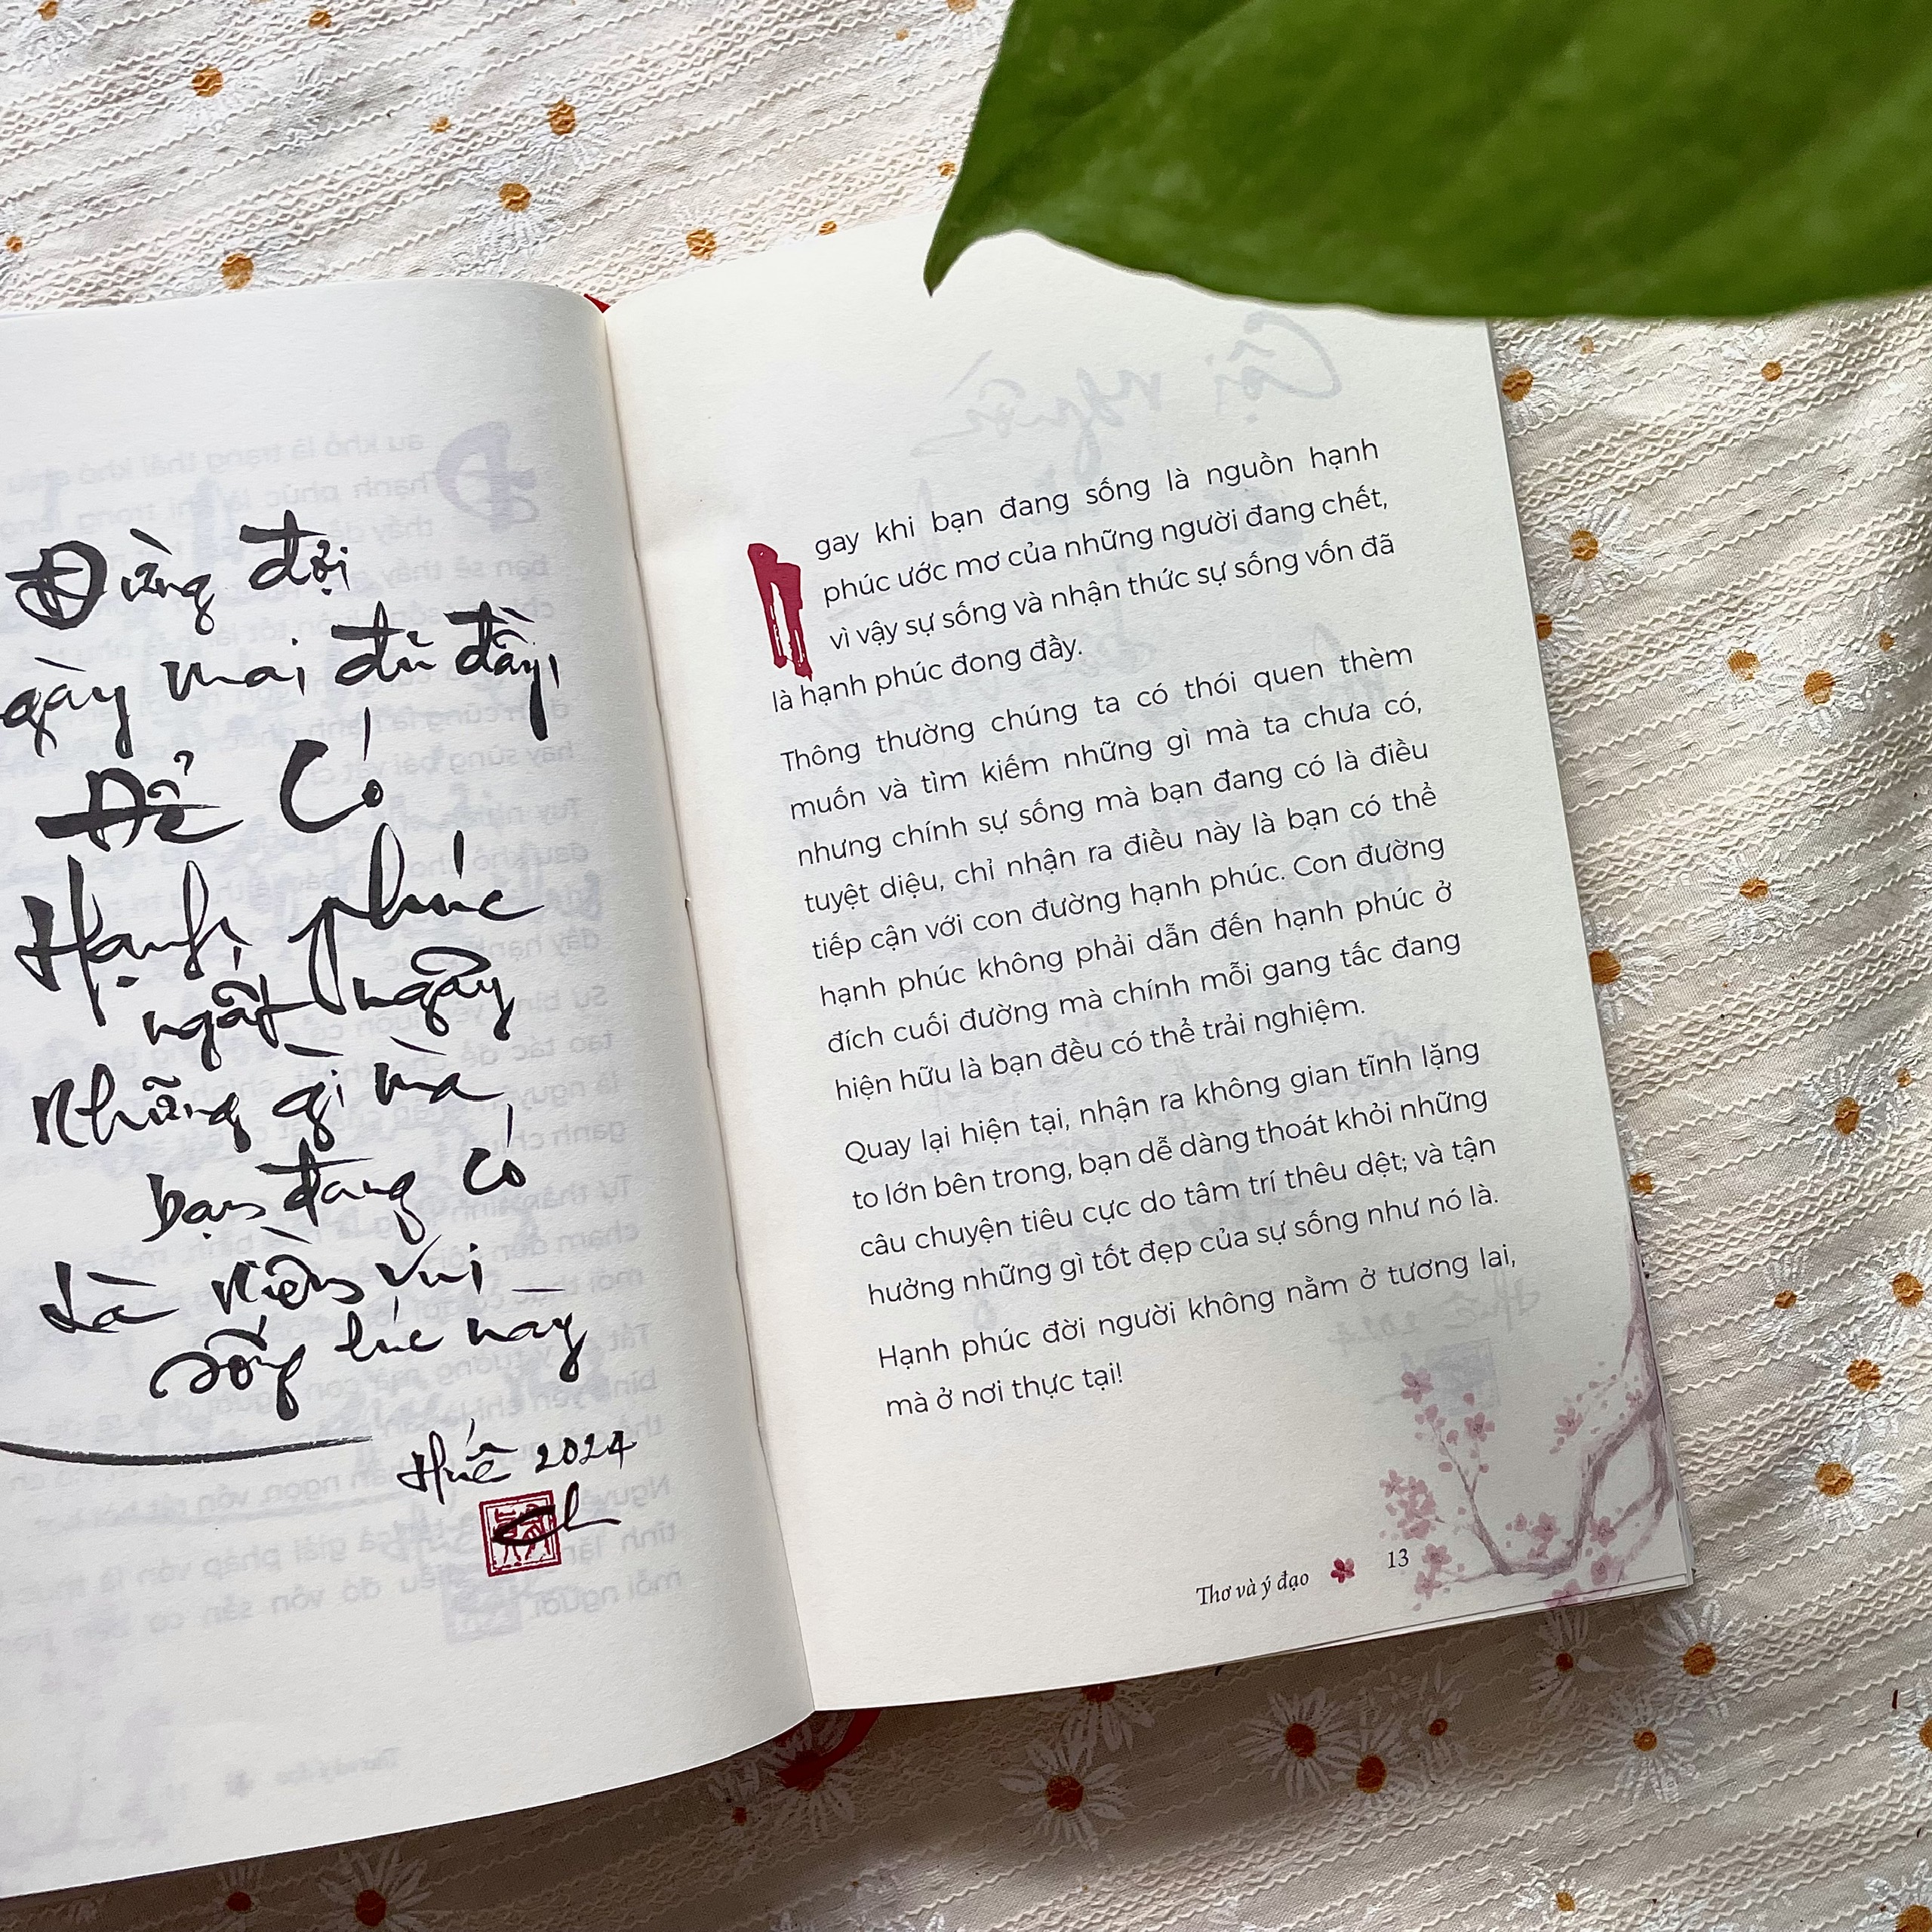 Đừng đợi
gày mai đủ đầy,
Để Có
Hạnh phúc
ngất ngây
Những gì mà
bạn đang có
Là niềm vui
sống lúc này
Huế 2024
Ngay khi bạn đang sống là nguồn hạnh
phúc ước mơ của những người đang chết,
vì vậy sự sống và nhận thức sự sống vốn đã
là hạnh phúc đong đầy.
Thông thường chúng ta có thói quen thèm
muốn và tìm kiếm những gì mà ta chưa có,
nhưng chính sự sống mà bạn đang có là điều
tuyệt diệu, chỉ nhận ra điều này là bạn có thể
tiếp cận với con đường hạnh phúc. Con đường
hạnh phúc không phải dẫn đến hạnh phúc ở
đích cuối đường mà chính mỗi gang tấc đang
hiện hữu là bạn đều có thể trải nghiệm.
Quay lại hiện tại, nhận ra không gian tĩnh lặng
to lớn bên trong, bạn dễ dàng thoát khỏi những
câu chuyện tiêu cực do tâm trí thêu dệt; và tận
hưởng những gì tốt đẹp của sự sống như nó là.
Hạnh phúc đời người không nằm ở tương lai,
mà ở nơi thực tại!
Thơ và ý đạo 13